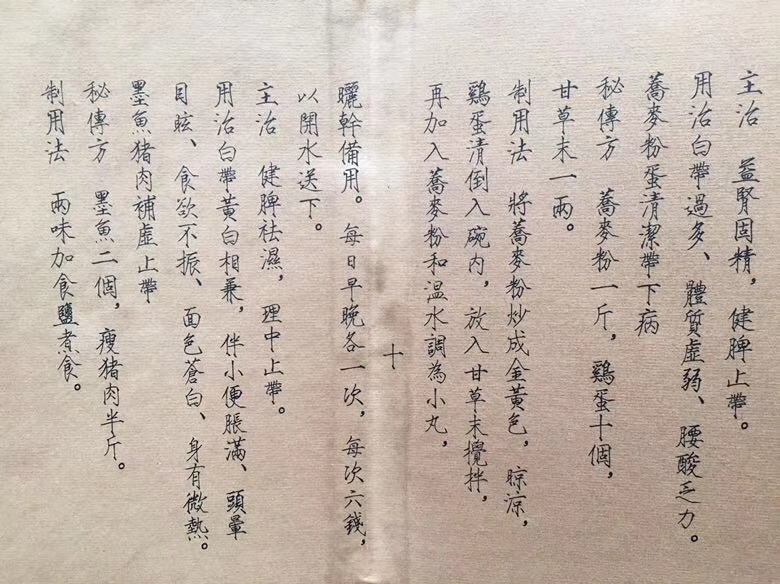 主治　益腎固精，健脾止帶。
用治白帶過多、體質虛弱、腰酸乏力。
蕎麥粉蛋清潔帶下病
秘傳方　蕎麥粉一斤，鷄蛋十個，
甘草末一兩。
制用法　將蕎麥粉炒成金黃色，晾涼，
鷄蛋清倒入碗内，放入甘草末攪拌，
再加入蕎麥粉和溫水調為小丸，
十
曬幹備用。每日早晚各一次，每次六錢，
以開水送下。
主治　健脾祛濕，理中止帶。
用治白帶黃白相兼，伴小便脹滿、頭暈
目眩、食欲不振、面色蒼白、身有微熱。
墨魚猪肉補虛止帶
秘傳方　墨魚二個，瘦猪肉半斤。
制用法　兩味加食鹽煮食。